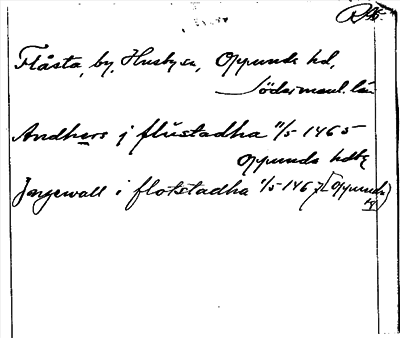 Flåsta, by, Husby sn, Oppunda hd,
Södermanl. län
Andhers j flustadha 11/5 1465
Oppunda hdtg
Jngewall i flotstadha 1/5 1467 [Oppunda